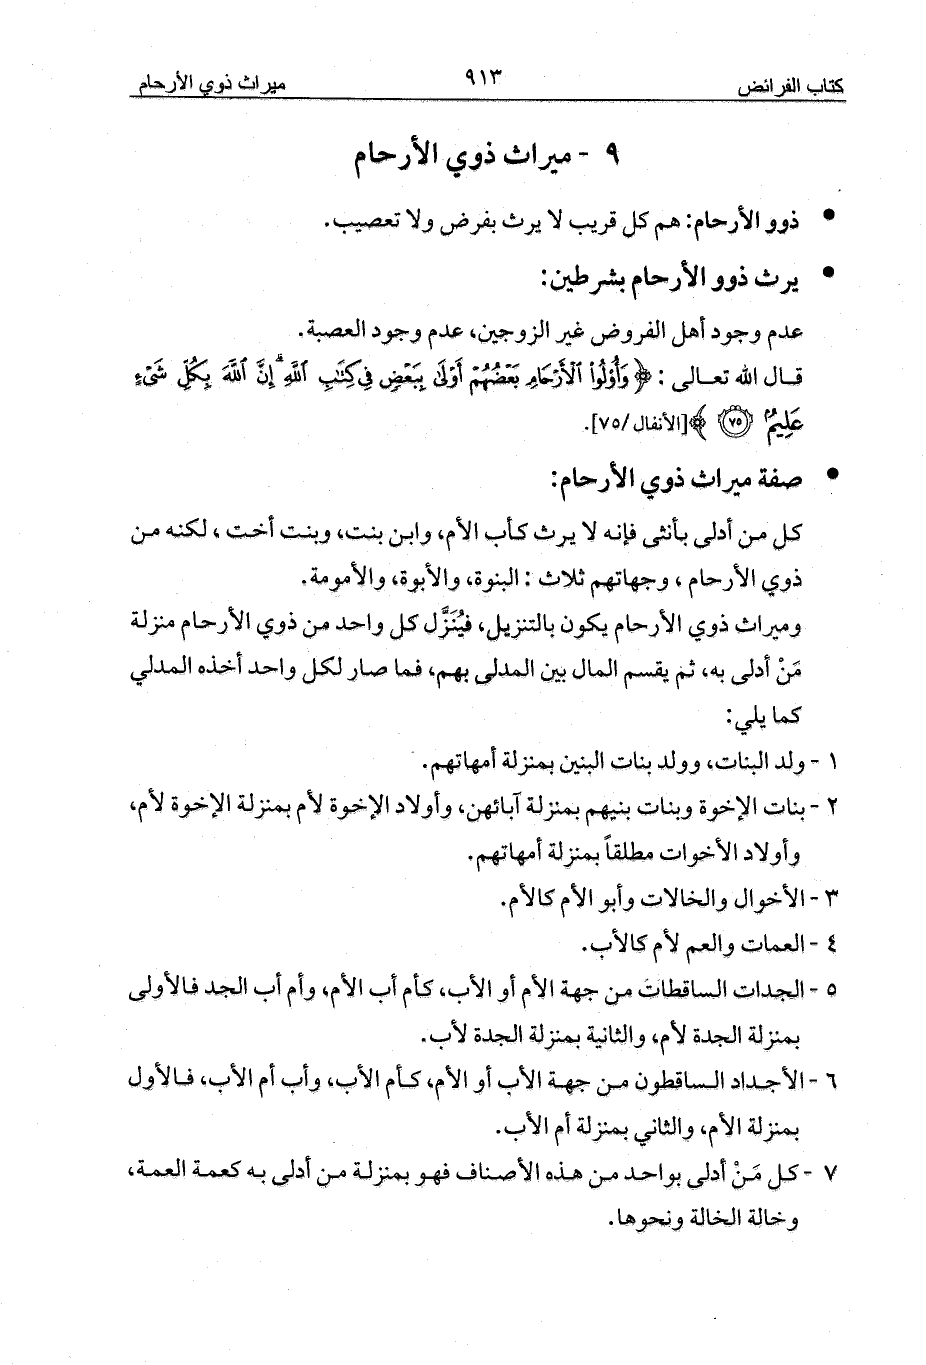 كتاب الفرائض ٩١٣ ميراث ذوي الأرحام
٩ - ميراث ذوي الأرحام
• ذوو الأرحام: هم كل قريب لا يرث بفرض ولا تعصيب.
• يرث ذوو الأرحام بشرطين:
عدم وجود أهل الفروض غير الزوجين، عدم وجود العصبة.
قال الله تعالى : ﴿وَأُوْلُواْ ٱلْأَرْحَامِ بَعْضُهُمْ أَوْلَىٰ بِبَعْضٍ فِي كِتَٰبِ ٱللَّهِۗ إِنَّ ٱللَّهَ بِكُلِّ شَىْءٍ
عَلِيمٌۢ ٧٥﴾ [الأنفال/٧٥].
• صفة ميراث ذوي الأرحام:
كل من أدلى بأنثى فإنه لا يرث كأب الأم، وابن بنت، وبنت أخت ، لكنه من
ذوي الأرحام ، وجهاتهم ثلاث : البنوة، والأبوة، والأمومة.
وميراث ذوي الأرحام يكون بالتنزيل، فيُنَزَّل كل واحد من ذوي الأرحام منزلة
مَنْ أدلى به، ثم يقسم المال بين المدلى بهم، فما صار لكل واحد أخذه المدلي
كما يلي:
١ - ولد البنات، وولد بنات البنين بمنزلة أمهاتهم.
٢ - بنات الإخوة وبنات بنيهم بمنزلة آبائهن، وأولاد الإخوة لأم بمنزلة الإخوة لأم،
وأولاد الأخوات مطلقاً بمنزلة أمهاتهم.
٣ - الأخوال والخالات وأبو الأم كالأم.
٤ - العمات والعم لأم كالأب.
٥ - الجدات الساقطات من جهة الأم أو الأب، كأم أب الأم، وأم أب الجد فالأولى
بمنزلة الجدة لأم، والثانية بمنزلة الجدة لأب.
٦ - الأجداد الساقطون من جهة الأب أو الأم، كأم الأب، وأب أم الأب، فالأول
بمنزلة الأم، والثاني بمنزلة أم الأب.
٧ - كل مَنْ أدلى بواحد من هذه الأصناف فهو بمنزلة من أدلى به كعمة العمة،
وخالة الخالة ونحوها.